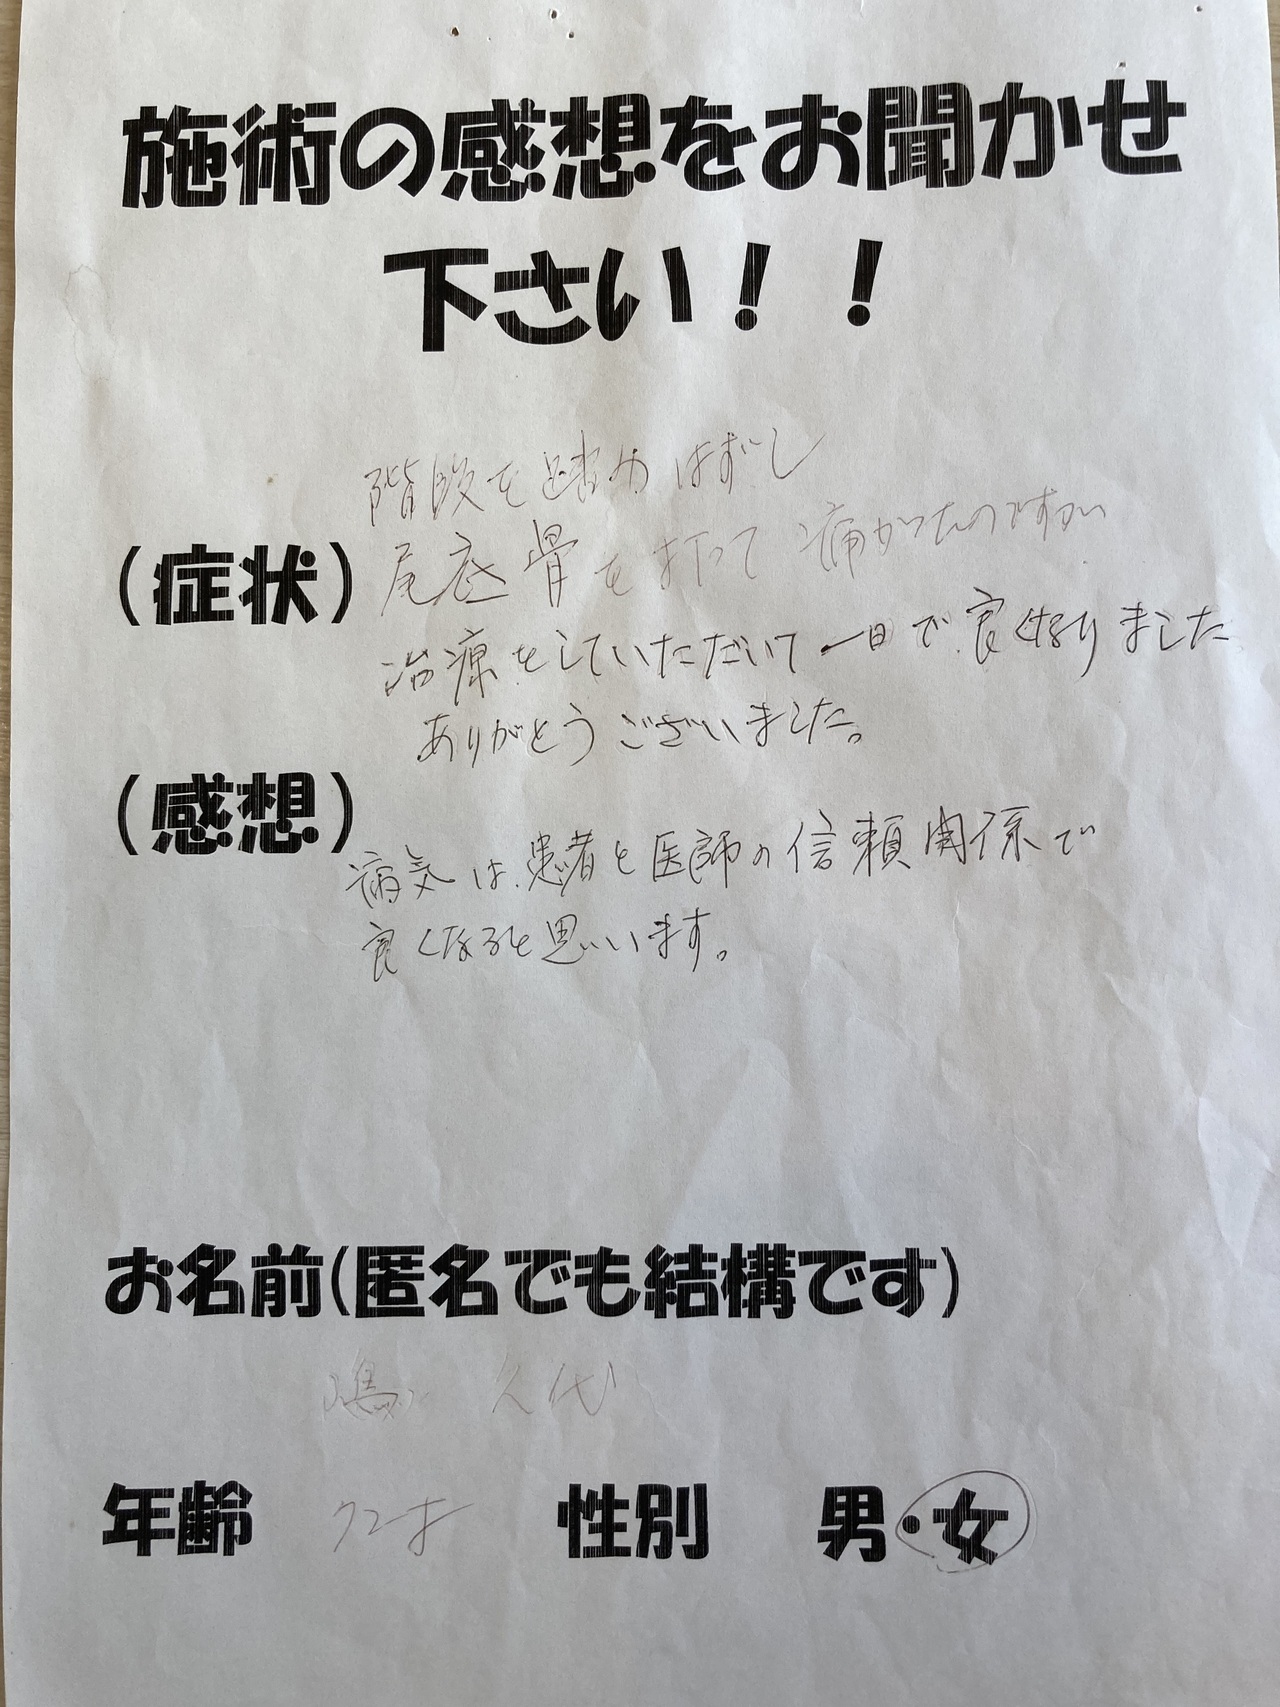 施術の感想をお聞かせ
下さい！！
階段を踏みはずし
(症状) 尾底骨を打って痛かったのですが
治療をしていただいて一回で良くなりました
ありがとうございました。
(感想)
病気は患者と医師の信頼関係で
良くなると思います。
お名前(匿名でも結構です)
嶋 久代
年齢 72才 性別 男・女